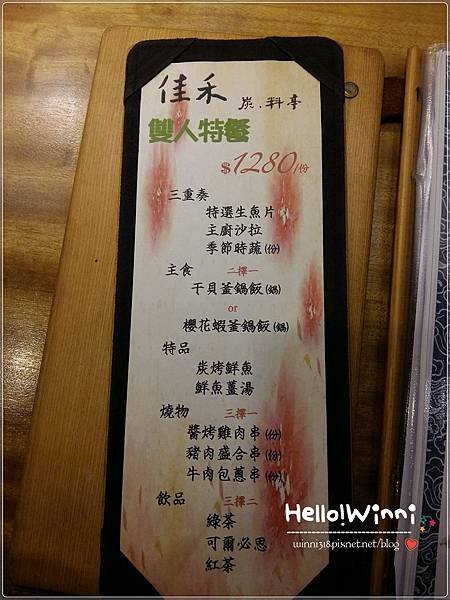 佳禾 炭.料亭
雙人特餐
$1280/份
三重奏
特選生魚片
主廚沙拉
季節時蔬(份)
主食 二擇一
干貝釜鍋飯(鍋)
or
櫻花蝦釜鍋飯(鍋)
特品
炭烤鮮魚
鮮魚薑湯
燒物 三擇一
醬烤雞肉串(份)
豬肉盛合串(份)
牛肉包蔥串(份)
飲品 三擇二
綠茶
可爾必思
紅茶
Hello!Winni
winni318.pixnet.net/blog